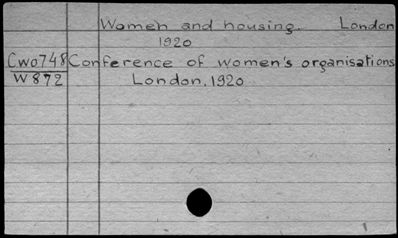 Women and housing. London
1920
Cwo748 Conference of women's organisations
W872 London, 1920